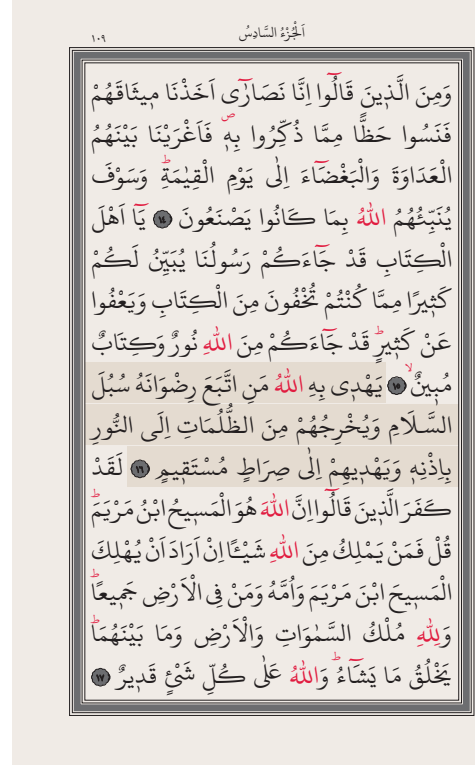 اَلْجُزْءُ السَّادِسُ
١٠٩
وَمِنَ الَّذ۪ينَ قَالُٓوا اِنَّا نَصَارٰٓى اَخَذْنَا م۪يثَاقَهُمْ
فَنَسُوا حَظًّا مِمَّا ذُكِّرُوا بِه۪ۖ فَاَغْرَيْنَا بَيْنَهُمُ
الْعَدَاوَةَ وَالْبَغْضَٓاءَ اِلٰى يَوْمِ الْقِيٰمَةِۜ وَسَوْفَ
يُنَبِّئُهُمُ اللّٰهُ بِمَا كَانُوا يَصْنَعُونَ ١٤ يَٓا اَهْلَ
الْكِتَابِ قَدْ جَٓاءَكُمْ رَسُولُنَا يُبَيِّنُ لَكُمْ
كَث۪يرًا مِمَّا كُنْتُمْ تُخْفُونَ مِنَ الْكِتَابِ وَيَعْفُوا
عَنْ كَث۪يرٍۜ قَدْ جَٓاءَكُمْ مِنَ اللّٰهِ نُورٌ وَكِتَابٌ
مُب۪ينٌۙ ١٥ يَهْد۪ى بِهِ اللّٰهُ مَنِ اتَّبَعَ رِضْوَانَهُ سُبُلَ
السَّلَامِ وَيُخْرِجُهُمْ مِنَ الظُّلُمَاتِ اِلَى النُّورِ
بِاِذْنِه۪ وَيَهْد۪يهِمْ اِلٰى صِرَاطٍ مُسْتَق۪يمٍ ١٦ لَقَدْ
كَفَرَ الَّذ۪ينَ قَالُٓوا اِنَّ اللّٰهَ هُوَ الْمَس۪يحُ ابْنُ مَرْيَمَۜ
قُلْ فَمَنْ يَمْلِكُ مِنَ اللّٰهِ شَيْـًٔا اِنْ اَرَادَ اَنْ يُهْلِكَ
الْمَس۪يحَ ابْنَ مَرْيَمَ وَاُمَّهُ وَمَنْ فِى الْاَرْضِ جَم۪يعًاۜ
وَلِلّٰهِ مُلْكُ السَّمٰوَاتِ وَالْاَرْضِ وَمَا بَيْنَهُمَاۜ
يَخْلُقُ مَا يَشَٓاءُۜ وَاللّٰهُ عَلٰى كُلِّ شَيْئٍ قَد۪يرٌ ١٧